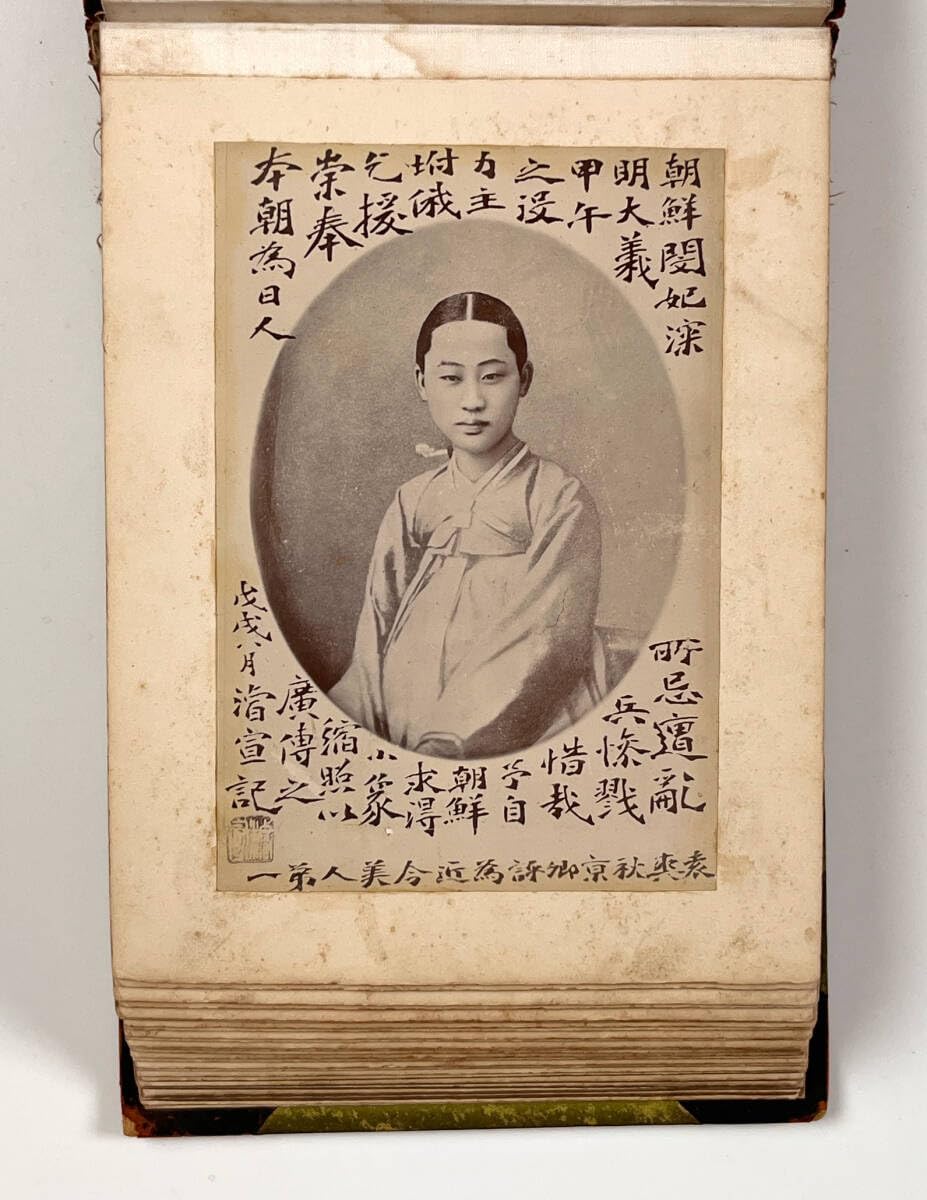 朝鮮閔妃深
明大義
甲午
之役
力主
坿俄
乞援
崇奉
本朝為日人
所忌遭亂
兵慘戮
惜哉
予自
朝鮮
求得
小象
縮照以
廣傳之
戊戌八月宣記
袁爽秋京卿許為近今美人第一